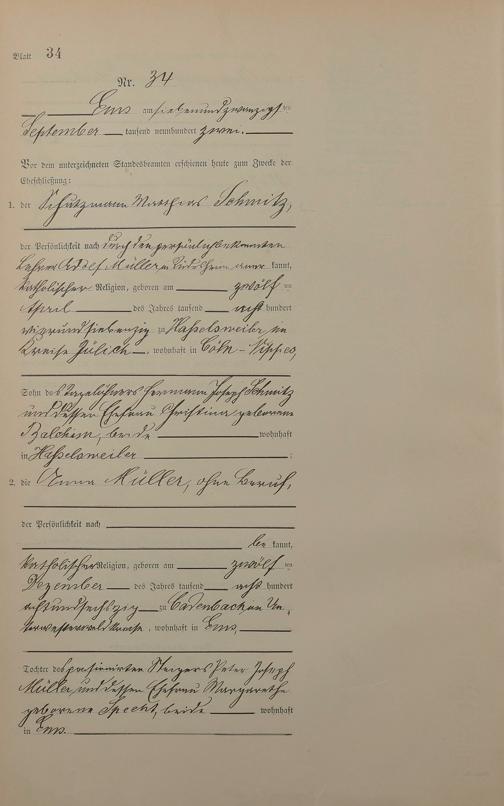 Blatt 34
Nr. 34
Ems am siebenundzwanzigsten
September tausend neunhundert zwei.
Vor dem unterzeichneten Standesbeamten erschienen heute zum Zwecke der
Eheschließung:
1. der Schutzmann Matthias Schmitz,
der Persönlichkeit nach durch den persönlich bekannten
Lehrer Adolf Müller kannt,
katholischer Religion, geboren am zwölften
April des Jahres tausend acht hundert
vierundsiebenzig zu Hasselsweiler im
Kreise Jülich, wohnhaft in Cöln-Nippes,
Sohn des Tagelöhners Hermann Joseph Schmitz
und dessen Ehefrau Christina geborene
beide wohnhaft
in Hasselsweiler;
2. die Anna Müller, ohne Beruf,
der Persönlichkeit nach
be kannt,
katholischer Religion, geboren am zwölften
Dezember des Jahres tausend acht hundert
achtundsechszig zu Cadenbach im Un-
terwesterwaldkreise, wohnhaft in Ems,
Tochter des pensionirten Steigers Peter Joseph
Müller und dessen Ehefrau Margarethe
geborene Specht, beide wohnhaft
in Ems.